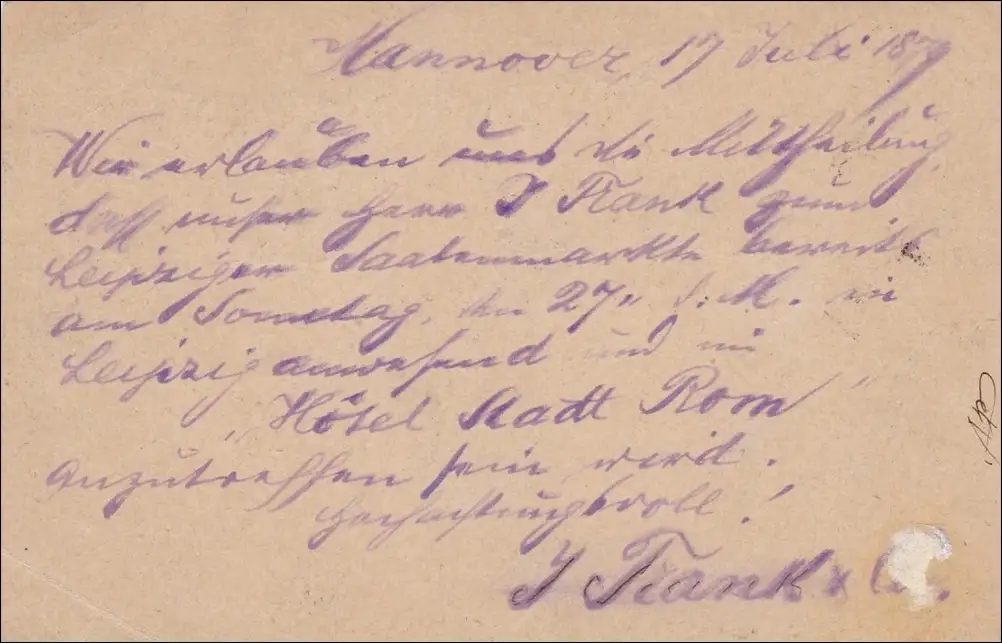 Hannover, 17 Juli 1879
Wir erlauben uns die Mittheilung,
daß unser Herr J Frank zum
Leipziger Saatenmarkte bereits
am Sonntag, den 27" d. M. in
Leipzig anwesend und im
„Hôtel Stadt Rom"
anzutreffen sein wird.
Hochachtungsvoll!
J Frank &